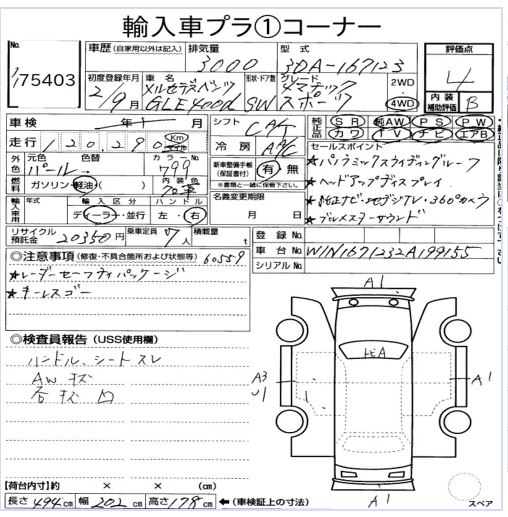 輸入車プラ①コーナー
No. 75403
車歴 (自家用以外は記入) 排気量 3000 型式 3DA-167123
評価点 4
内装補助評価 B
初度登録年月 2/9月 車名 メルセデスベンツ GLE400d 形状・ドア数 SW グレード 4マチック スポーツ 2WD 4WD
車検 年 月 シフト CAT 純正品 SR 純AW PS PW
カワ TV ナビ エアB
走行 120,290 Km マイル 冷房 AAC
セールスポイント
外色 元色 パール 色替 カラーNo. 799
★パノラミックスライディングルーフ
燃料 ガソリン・軽油・( ) 内色
新車整備手帳 (保証書付) 有・無
※書類と一緒に保管下さい。
★ヘッドアップディスプレイ
輸入車用 年式 輸入区分 ディーラー・並行 ハンドル 左・右
名義変更期限 月 日
★純正ナビ・地デジTV・360°カメラ
★ブルメスターサウンド
リサイクル預託金 20350円 乗車定員 7人 積載量 t
登録No.
車台No. W1N1671232A199155
シリアルNo.
◎注意事項 (修復・不具合箇所および状態等) 60559
★レーダーセーフティパッケージ
★キーレスゴー
◎検査員報告 (USS使用欄)
ハンドル、シートスレ
AWキズ
各キズ凹
A1
A3
U1
A1
A1
スペア
【荷台内寸】約 × × (cm)
長さ 494cm 幅 202cm 高さ 178cm ←(車検証上の寸法)